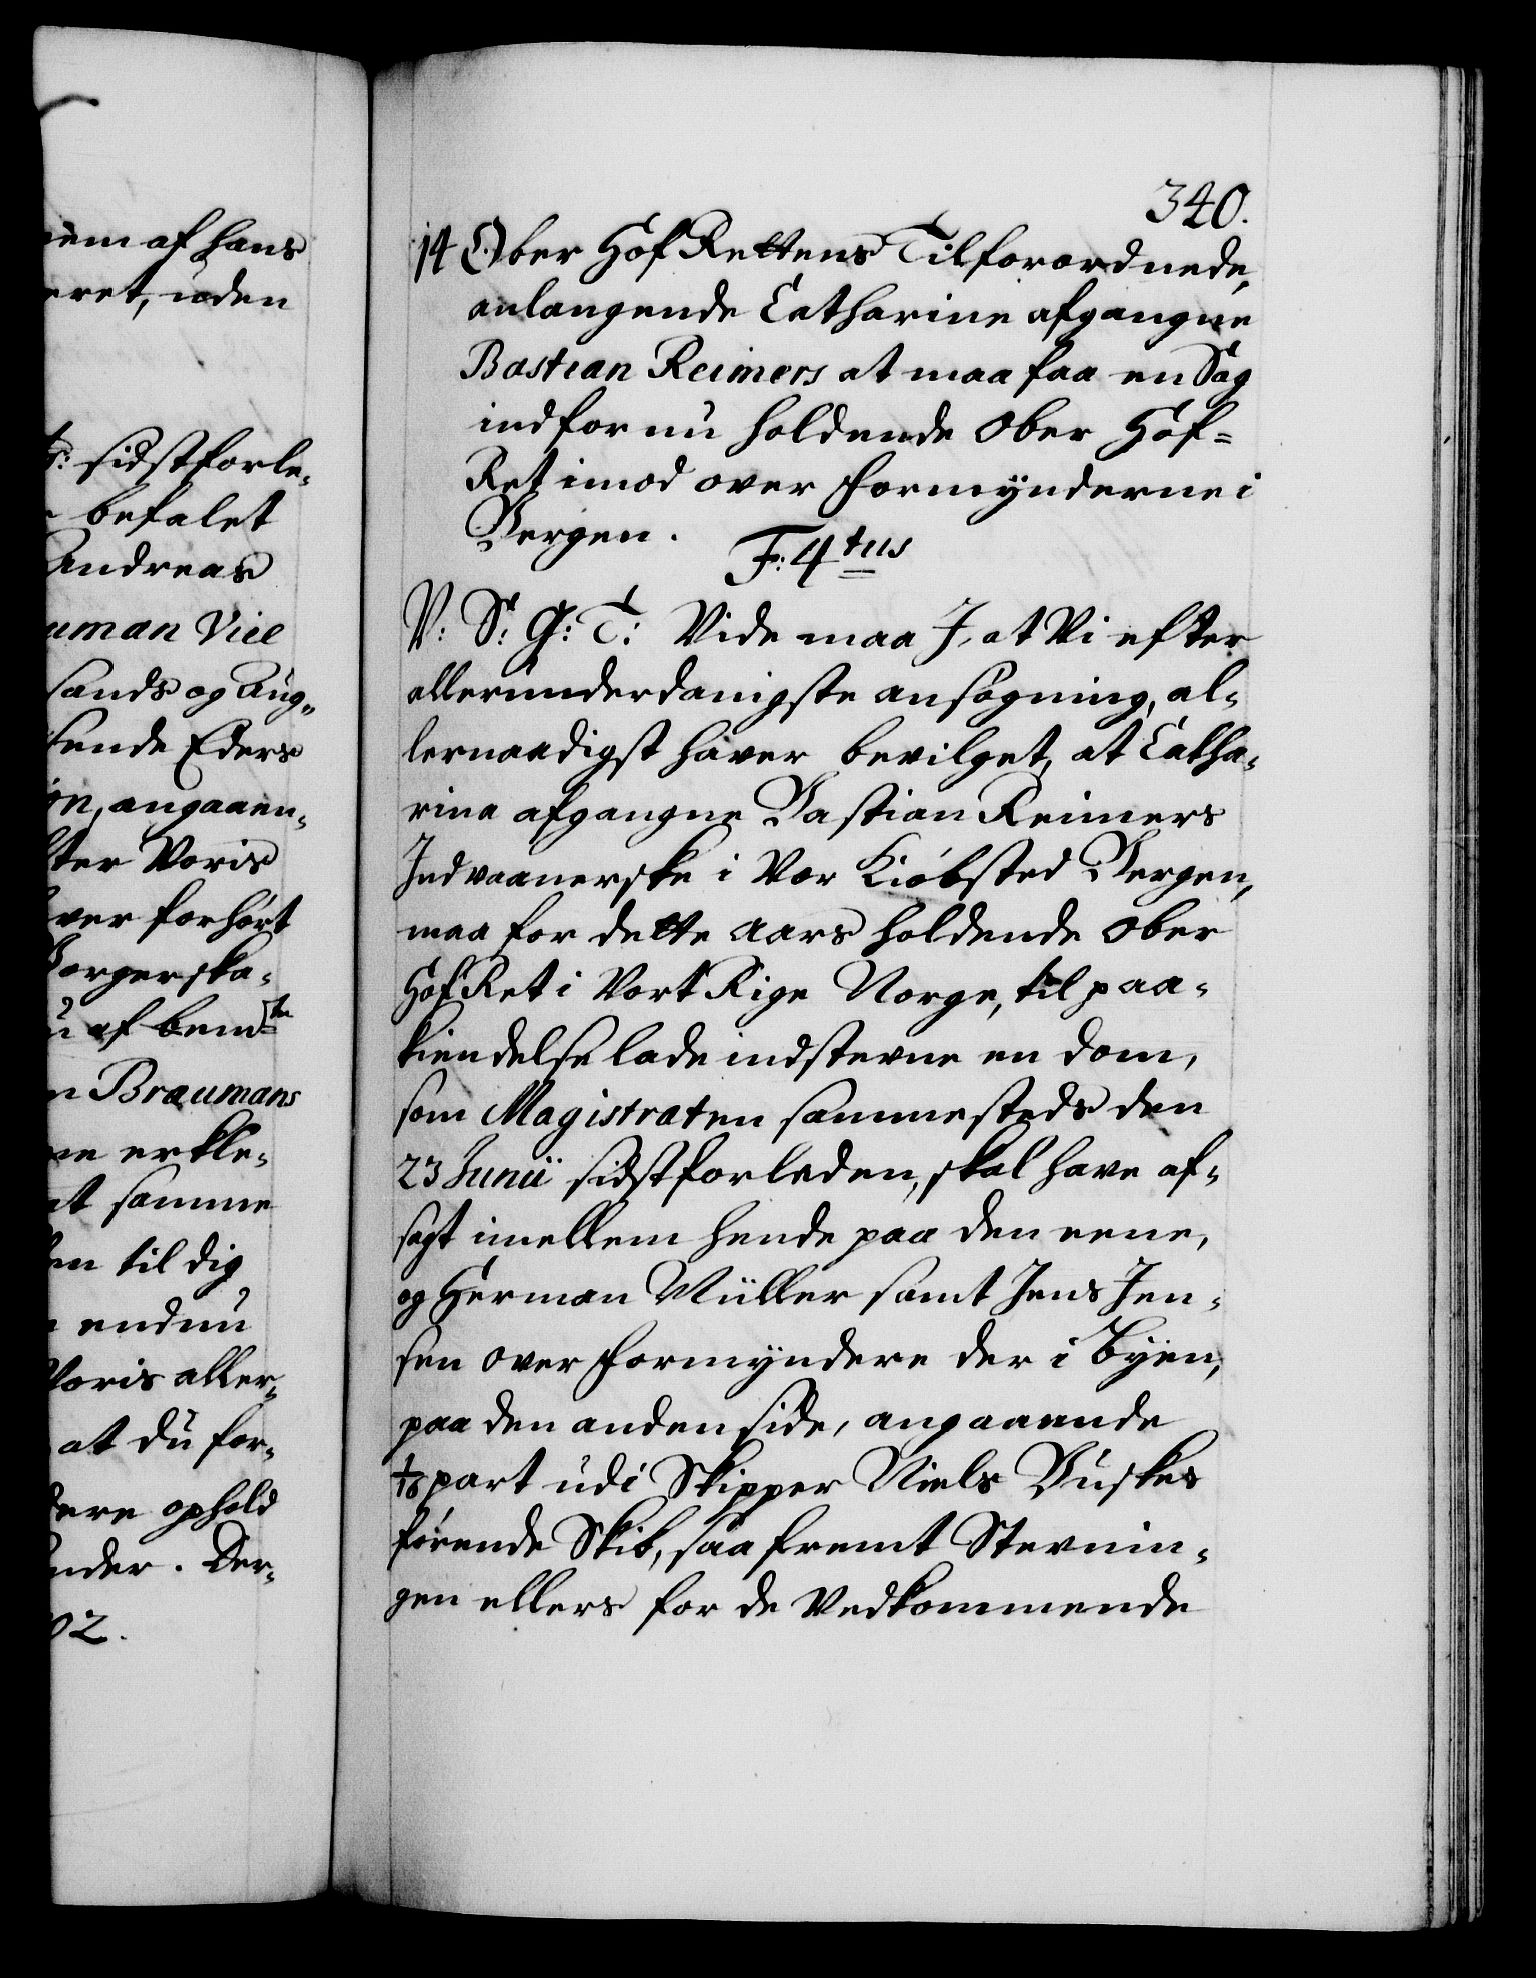 iem af hans
eret, uden
t: sidstforle-
befalet
Andreas
uman Vice
sands og Aug-
ende Eders
on, angaaen-
ter Voris
ver forhört
Borgerska-
u af bemte
n Braumans
ne erkle-
at samme
en til dig
endnu
Voris aller-
at du for-
dere ophold
under. Der-
02.
340.
14 Ober Hof Rettens Tilforordnede,
anlangende Catharine afgangne
Bastian Reimers at maa faa en Sag
ind for nu holdende Ober Hof-
Ret imod over formynderne i
Bergen.
F: 4tus
V: S: G: T: Vide maa J, at Vi efter
allerunderdanigste ansøgning, al-
lernaadigst haver bevilget, at Catha-
rina afgangne Bastian Reimers
Indvaanerske i Vor Kiöbsted Bergen,
maa for dette Aars holdende Ober
Hof Ret i Vort Rige Norge, til paa-
kiendelse lade indstevne en dom,
som Magistraten sammesteds den
23 Junii sidstforleden, skal have af-
sagt imellem hende paa den eene,
og Herman Müller samt Jens Jen-
sen over formyndere der i Byen,
paa den anden side, angaaende
1/8 part udi Skipper Niels Buskes
förende Skib, saafremt Stevnin-
gen ellers for de Vedkommende